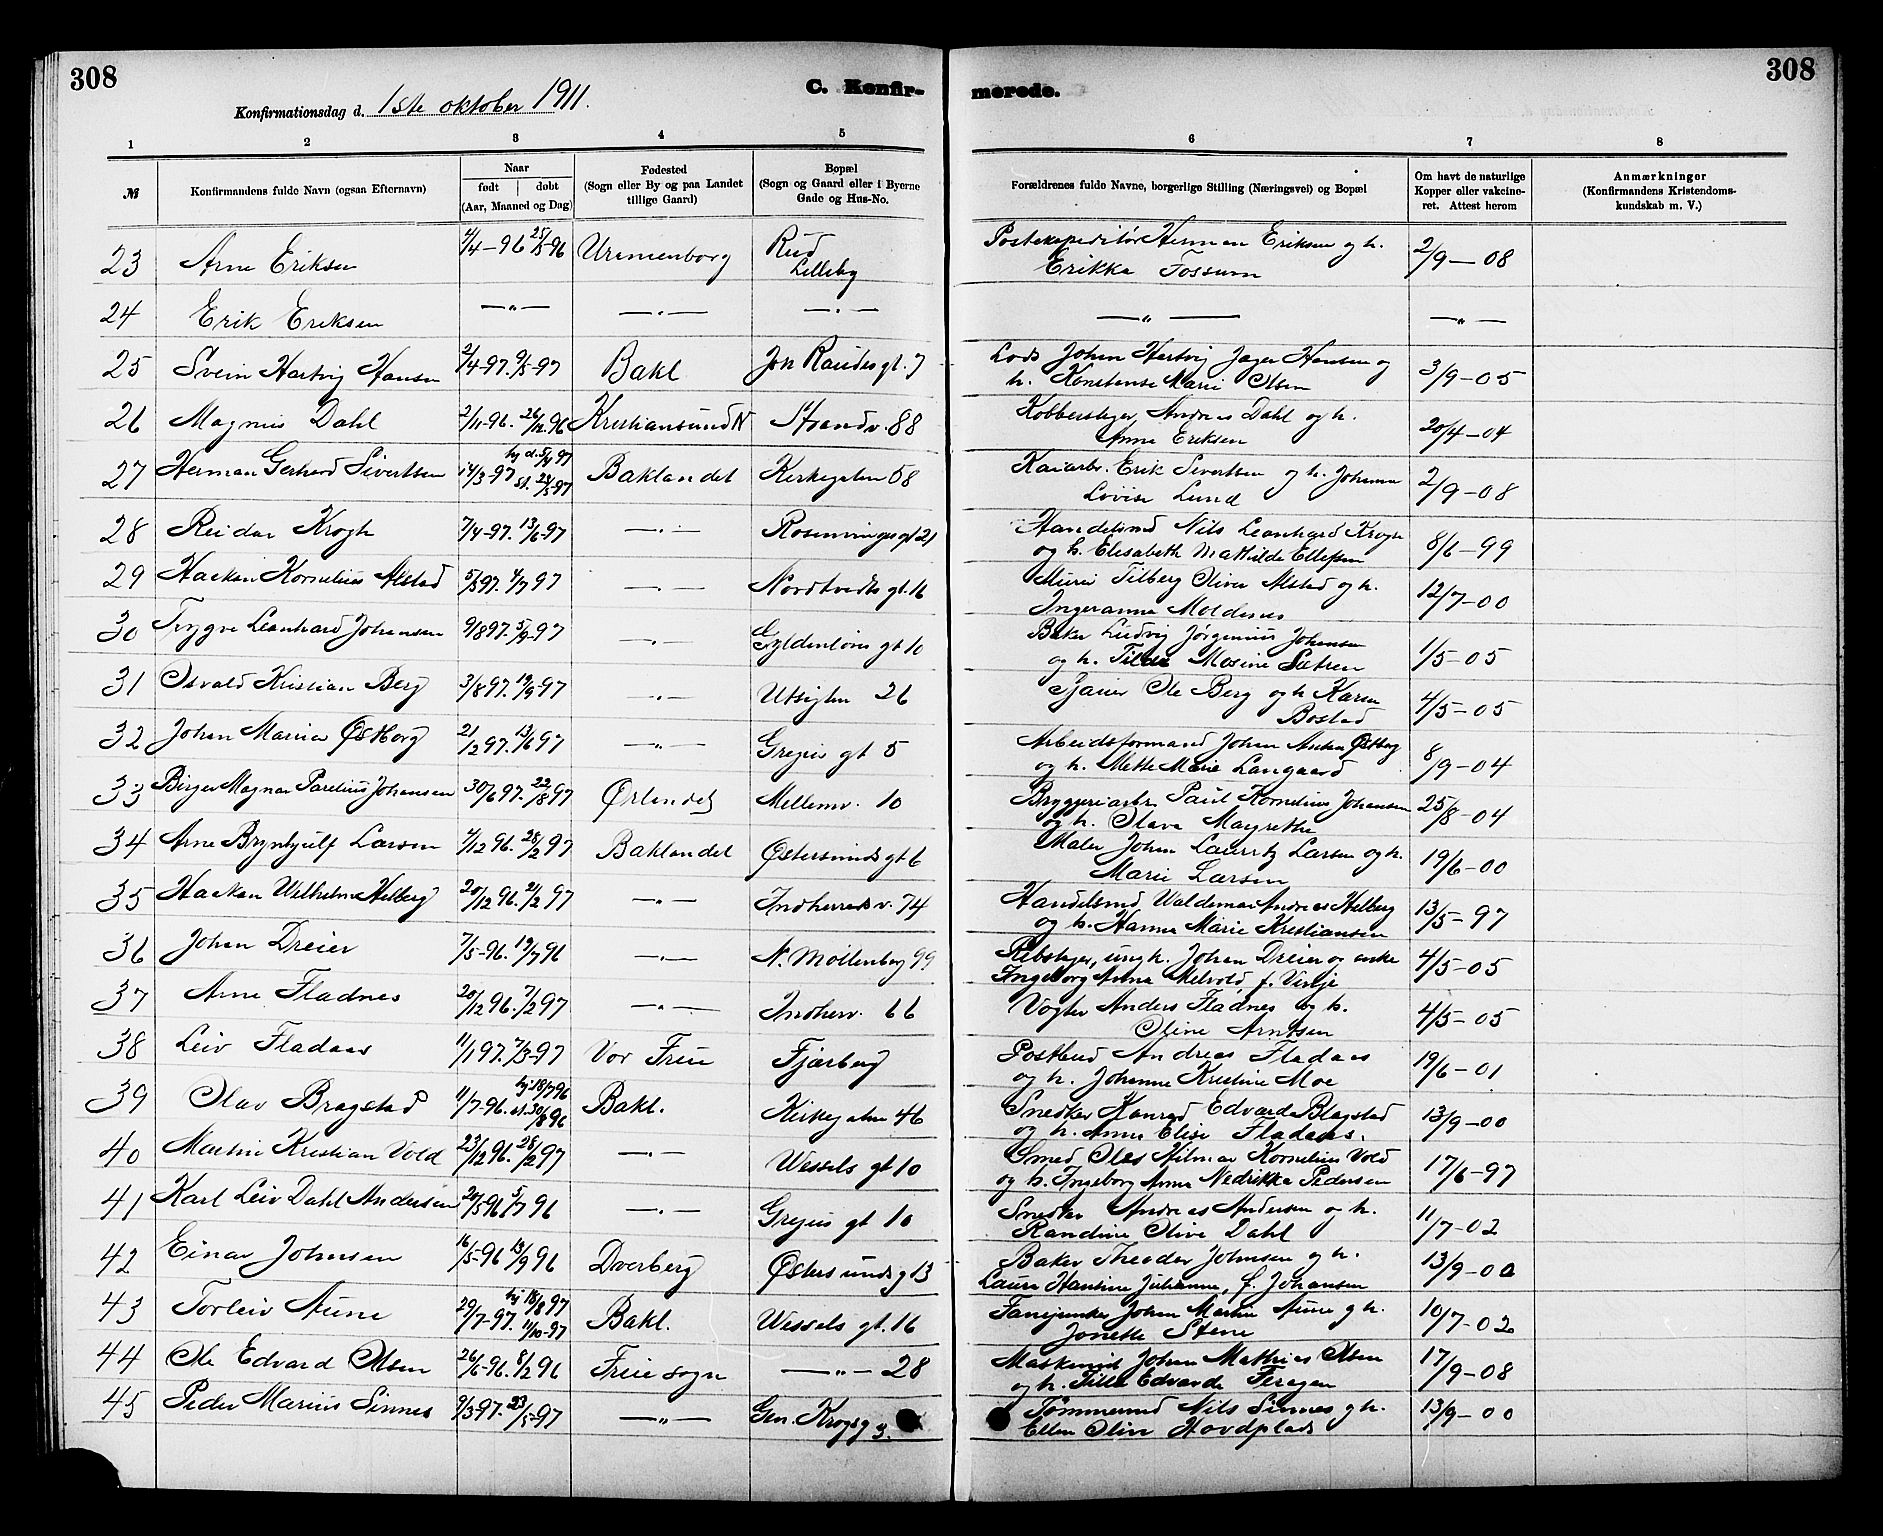 308
308
Konfirmationsdag d. 1ste oktober 1911.
C. Konfir-
merede.
1 2 3 4 5 6 7 8
№
Konfirmandens fulde Navn (ogsaa Efternavn)
Naar
født | døbt
(Aar, Maaned og Dag)
Fødested
(Sogn eller By og paa Landet
tillige Gaard)
Bopæl
(Sogn og Gaard eller i Byerne
Gade og Hus-No.
Forældrenes fulde Navne, borgerlige Stilling (Næringsvei) og Bopæl
Om havt de naturlige
Kopper eller vakcine-
ret. Attest herom
Anmærkninger
(Konfirmandens Kristendoms-
kundskab m. V.)
23 Arne Eriksen 4/4-96 25/5-96 Uranienborg Rud Lilleby Postexpeditør Herman Eriksen og h. Erikka Fossum 2/9-08
24 Erik Eriksen —"— —"— —"— —"— —"—
25 Svein Hartvig Hansen 2/4-97. 9/5-97 Bakl Jon Raudes gt. 7 Lods Johan Hartvig Jager Hansen og h. Konstanse Marie Olsen 3/9-05
26 Magnus Dahl 2/11-96. 26/12-96 Kristiansund N Strandv. 88 Kobberslager Andreas Dahl og h. Anna Eriksen 20/4-04
27 Herman Gerhard Sivertsen 14/3-97 hj d. 5/4 97 st. 28/5-97 Baklandet Kirkegaten 58 Kaiarb. Erik Sivertsen og h. Johanna Lovise Lund 2/9-08
28 Reidar Krogh 7/4-97. 13/6-97 —"— Rosenvinges gt 21 Handelsmd Nils Leonhard Krogh og h. Elisabeth Mathilde Ellefsen 8/6-99
29 Haakon Kornelius Alstad 5/5 97. 4/7 97 —"— Nordtvedts gt. 16 Murer Tilberg Oliver Alstad og h. Ingeranna Moldenes 12/7-00
30 Trygve Leonhard Johansen 9/8 97. 5/9-97 —"— Gyldenløves gt 10 Baker Ludvig Jørginius Johansen og h. Tilda Mosine Sætren 1/5-05
31 Osvald Kristian Berg 3/8 97. 19/9 97 —"— Utsigten 26 Ole Berg og h Karen Bostad 4/5-05
32 Johan Marius Østborg 21/2 97. 13/6 97 —"— Gregus gt 5 Arbeidsformand Johan Anton Østborg og h. Mette Marie Langaard 8/9-04
33 Birger Magnar Parelius Johansen 30/6 97. 22/8 97 Ørlandet Mellemv. 10 Bryggeriarb. Paul Kornelius Johansen og h. Olava Margrethe 25/8-04
34 Arne Brynhjulf Larsen 4/12 96. 28/2 97 Baklandet Østersunds gt 6 Maler Johan Lauritz Larsen og h. Marie Larsen 19/6-00
35 Haakon Wilhelm Helberg 20/12 96. 21/2 97 —"— Indherredsv. 74 Handelsmd Waldemar Andreas Helberg og h. Hanna Marie Kristiansen 13/5-97
36 Johan Dreier 7/5-96. 19/7 96 —"— N. Møllenberg 99 Rebslager, ungk. Johan Dreier og enke Ingeborg Anna Melvold f. Vinje 4/5-05
37 Arne Fladnes 20/12 96. 7/2 97 —"— Indherv. 66 Vogter Anders Fladnes og h. Oline Arntsen 4/5-05
38 Leiv Fladaas 11/1 97. 7/3-97 Vor Frue Fjærberg Postbud Andreas Fladaas og h. Johanna Kristine Moe 19/6-01
39 Olav Bragstad 11/7-96. hj. 18/7 96 st. 30/8 96 Bakl. Kirkegaten 46 Snedker Konrad Edvard Blagstad og h. Anna Elise Fladaas. 13/9-00
40 Martin Kristian Vold 23/12 96. 28/2 97 —"— Wessels gt 10 Smed Oles Hilmar Kornelius Vold og h. Ingeborg Anna Nedrikka Pedersen 17/6-97
41 Karl Leiv Dahl Andersen 20/5 96 5/7 96 —"— Gregus gt 10 Snedker Andreas Andersen og h. Randine Olive Dahl 11/7-02
42 Einar Johnsen 16/5-96 13/9 96 Dverberg Østersunds g 13 Baker Theodor Johnsen og h. Laura Hantine Julianne, f. Johansen 13/9-00
43 Torleiv Aune 29/7-97. hj 18/8 97 11/10-97 Bakl. Wessels gt. 16 Fanejunker Johan Martin Aune og h. Jonette Stene 10/7-02
44 Ole Edvard Olsen 26/6-96. 8/2 96 Frue sogn —"— 28 Maskinist Johan Mathias Olsen og h. Tilla Edvarda Feragen 17/9-08
45 Peder Marius Sinnes 9/3-97. 23/5-97 —"— Gen. Krogsg 3. Tømmermd Nils Sinnes og h. Ellen Olive Hovdplads 13/9-00